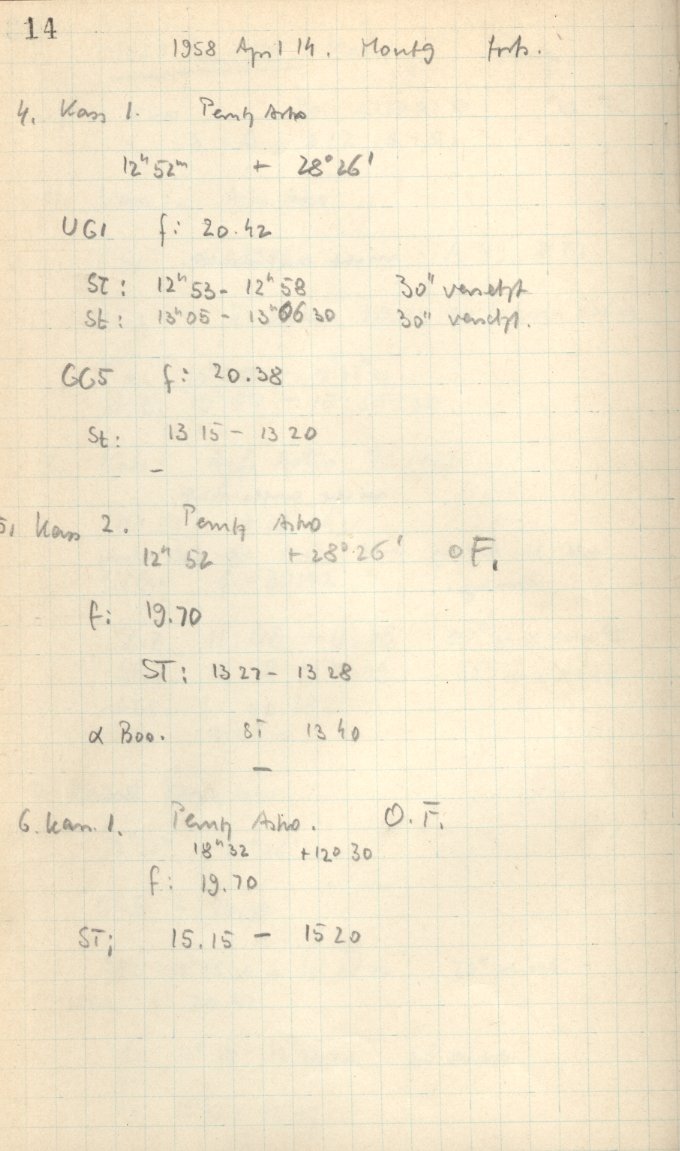 14
1958 April 14. Montg forts.
4. Kass 1. Perutz Astro
12ʰ52ᵐ + 28°26'
UG1 f: 20.42
ST: 12ʰ53 - 12ʰ58 30" versetzt
St: 13ʰ05 - 13ʰ06 30 30" versetzt.
GG5 f: 20.38
St: 13 15 - 13 20
-
5. Kass 2. Perutz Astro
12ʰ 52 + 28° 26' oF.
f: 19.70
ST: 13 27 - 13 28
α Boo. ST 13 40
-
6. Kass. 1. Perutz Astro. O.F.
18ʰ32 +12° 30
f: 19.70
ST; 15.15 - 15 20